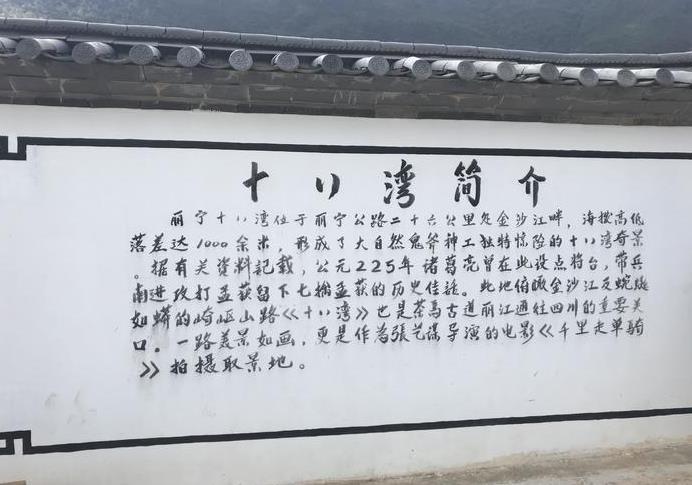 十八湾简介
丽宁十八湾位于丽宁公路二十六公里处金沙江畔，海拔高低
落差达1000余米，形成了大自然鬼斧神工独特惊险的十八湾奇景
。据有关资料記载，公元225年诸葛亮曾在此设点将台，带兵
南进攻打孟获留下七擒孟获的历史佳話。此地俯瞰金沙江及蜿蜒
如蟒的崎岖山路《十八湾》也是茶馬古道丽江通往四川的重要关
口。一路美景如画，更是作为張艺谋导演的电影《千里走单騎
》拍摄取景地。